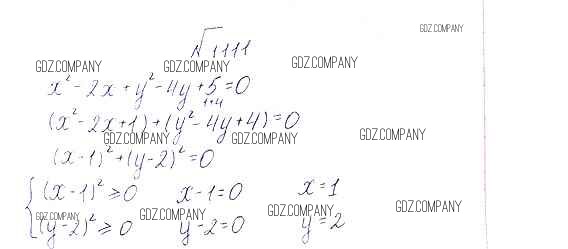 GDZ.COMPANY
√1111
GDZ.COMPANY GDZ.COMPANY GDZ.COMPANY
x² - 2x + y² - 4y + 5 = 0
1+4
(x² - 2x + 1) + (y² - 4y + 4) = 0
GDZ.COMPANY GDZ.COMPANY GDZ.COMPANY
(x - 1)² + (y - 2)² = 0
{ (x - 1)² ≥ 0 x - 1 = 0 x = 1
GDZ.COMPANY GDZ.COMPANY GDZ.COMPANY GDZ.COMPANY
(y - 2)² ≥ 0 y - 2 = 0 y = 2